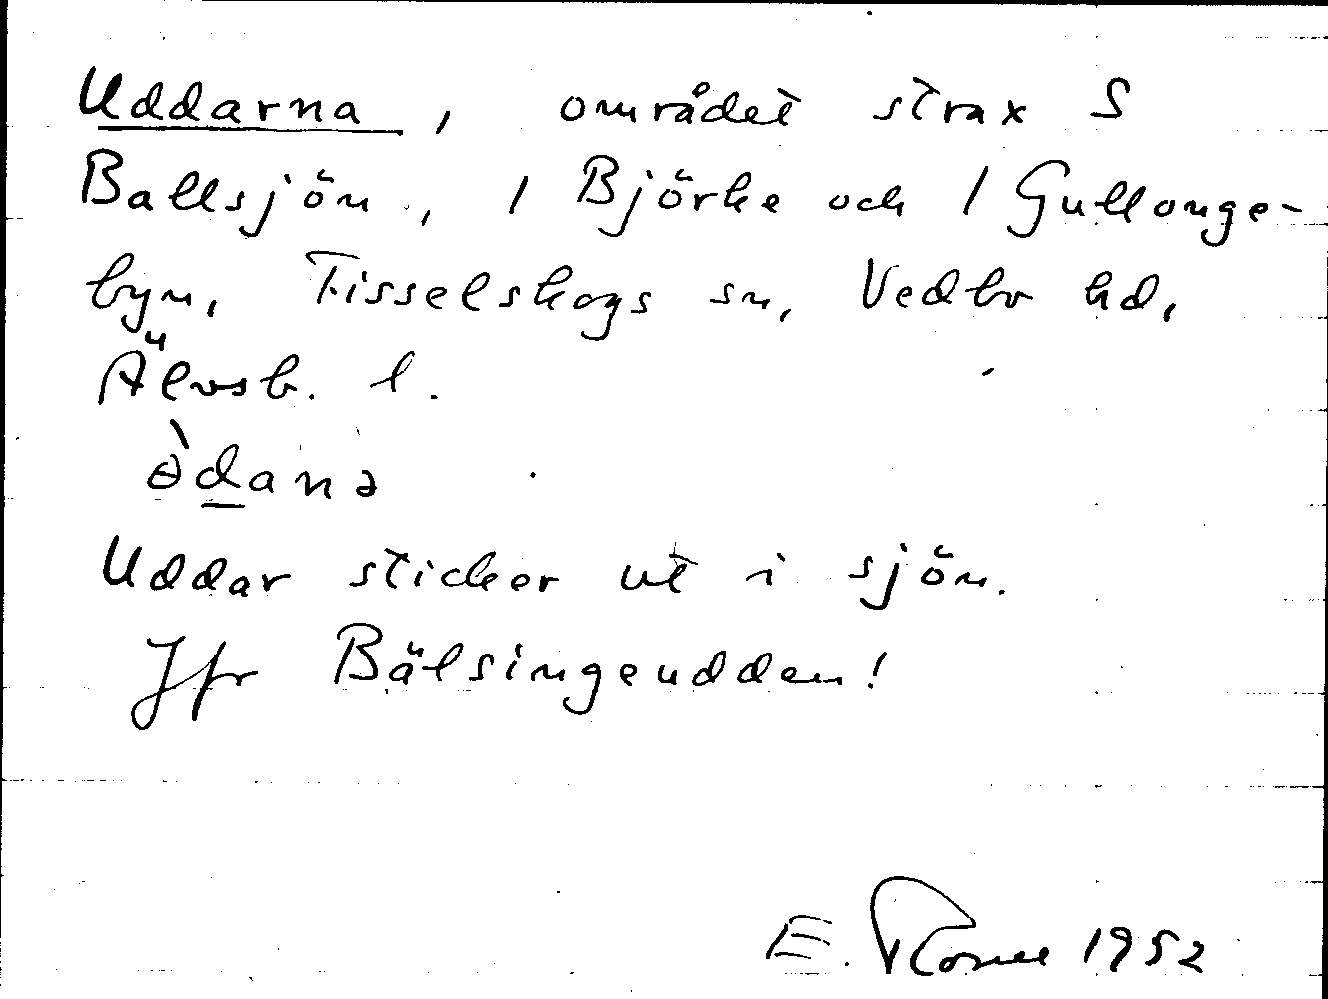 Uddarna, området strax S
Ballsjön, / Björke och / Gullonge-
byn, Tisselskogs sn, Vedbo hd,
Älvsb. l.
ɵ̀danə
Uddar sticker ut i sjön.
Jfr Bälsingeudden!
E. 1952